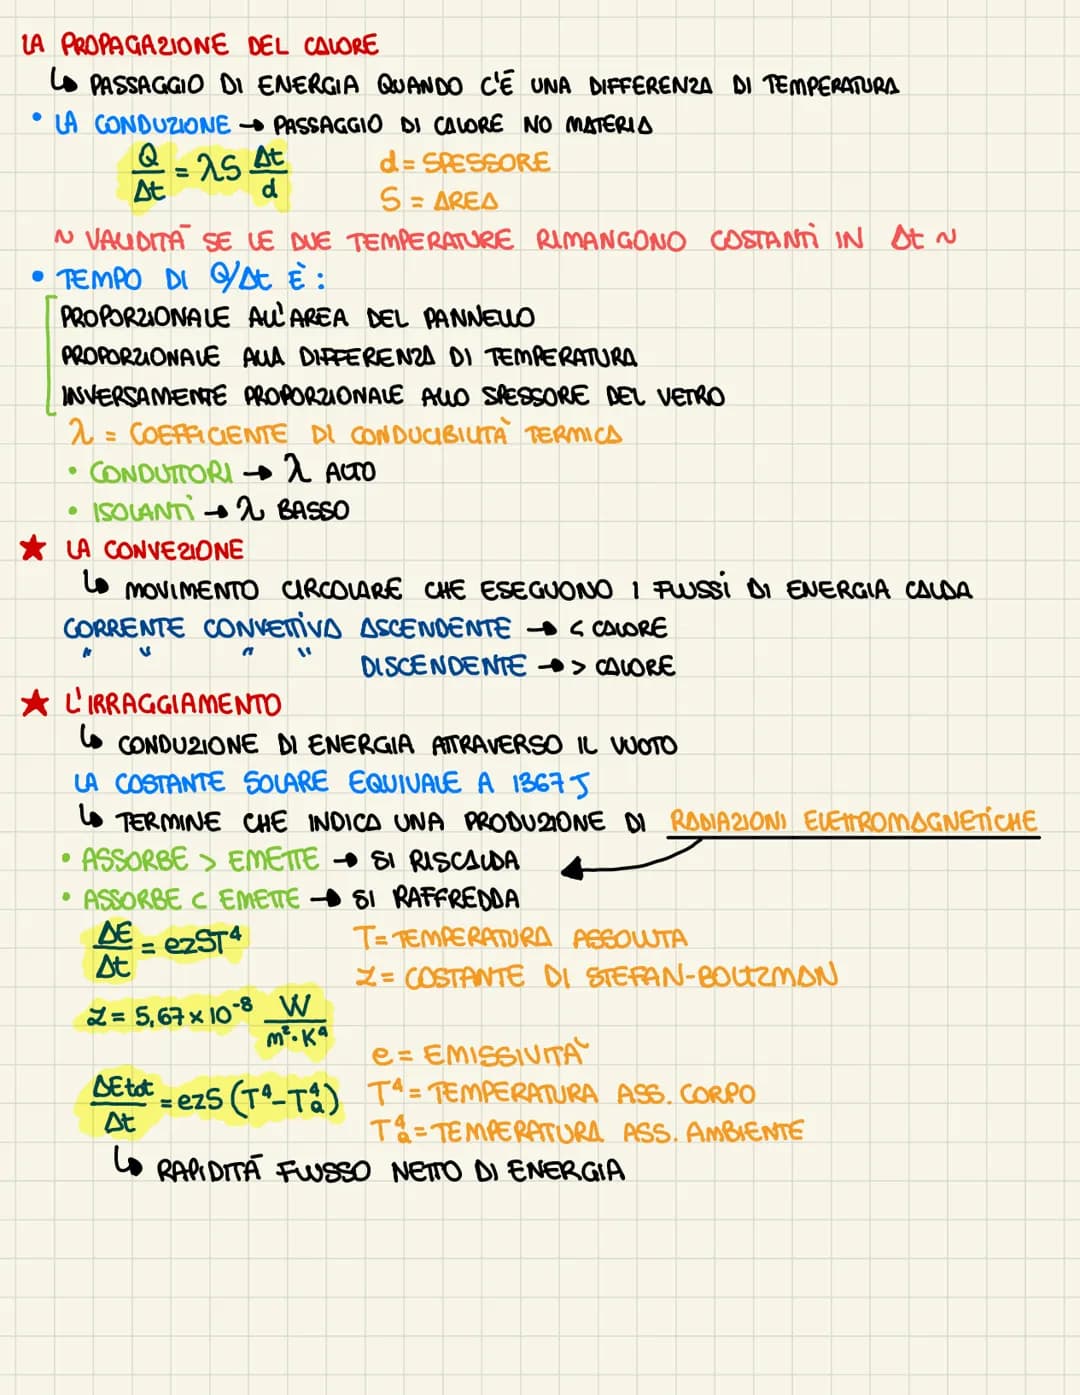 LA PROPAGAZIONE DEL CALORE
↳ PASSAGGIO DI ENERGIA QUANDO C'È UNA DIFFERENZA DI TEMPERATURA
• LA CONDUZIONE → PASSAGGIO DI CALORE NO MATERIA
Q/Δt = λS Δt/d
d = SPESSORE
S = AREA
~ VALIDITÀ SE LE DUE TEMPERATURE RIMANGONO COSTANTI IN Δt ~
• TEMPO DI Q/Δt È:
PROPORZIONALE ALL'AREA DEL PANNELLO
PROPORZIONALE ALLA DIFFERENZA DI TEMPERATURA
INVERSAMENTE PROPORZIONALE ALLO SPESSORE DEL VETRO
λ = COEFFICIENTE DI CONDUCIBILITÀ TERMICA
• CONDUTTORI → λ ALTO
• ISOLANTI → λ BASSO
★ LA CONVEZIONE
↳ MOVIMENTO CIRCOLARE CHE ESEGUONO I FLUSSI DI ENERGIA CALDA
CORRENTE CONVETTIVA ASCENDENTE → < CALORE
" " " " DISCENDENTE → > CALORE
★ L'IRRAGGIAMENTO
↳ CONDUZIONE DI ENERGIA ATTRAVERSO IL VUOTO
LA COSTANTE SOLARE EQUIVALE A 1367 J
↳ TERMINE CHE INDICA UNA PRODUZIONE DI RADIAZIONI ELETTROMAGNETICHE
• ASSORBE > EMETTE → SI RISCALDA
• ASSORBE < EMETTE → SI RAFFREDDA
ΔE/Δt = ezST⁴
T = TEMPERATURA ASSOLUTA
z = COSTANTE DI STEFAN-BOLTZMAN
z = 5,67 × 10⁻⁸ W/m²·K⁴
e = EMISSIVITÀ
ΔEtot/Δt = ezS (T⁴ - Ta⁴)
T⁴ = TEMPERATURA ASS. CORPO
Ta⁴ = TEMPERATURA ASS. AMBIENTE
↳ RAPIDITÀ FLUSSO NETTO DI ENERGIA